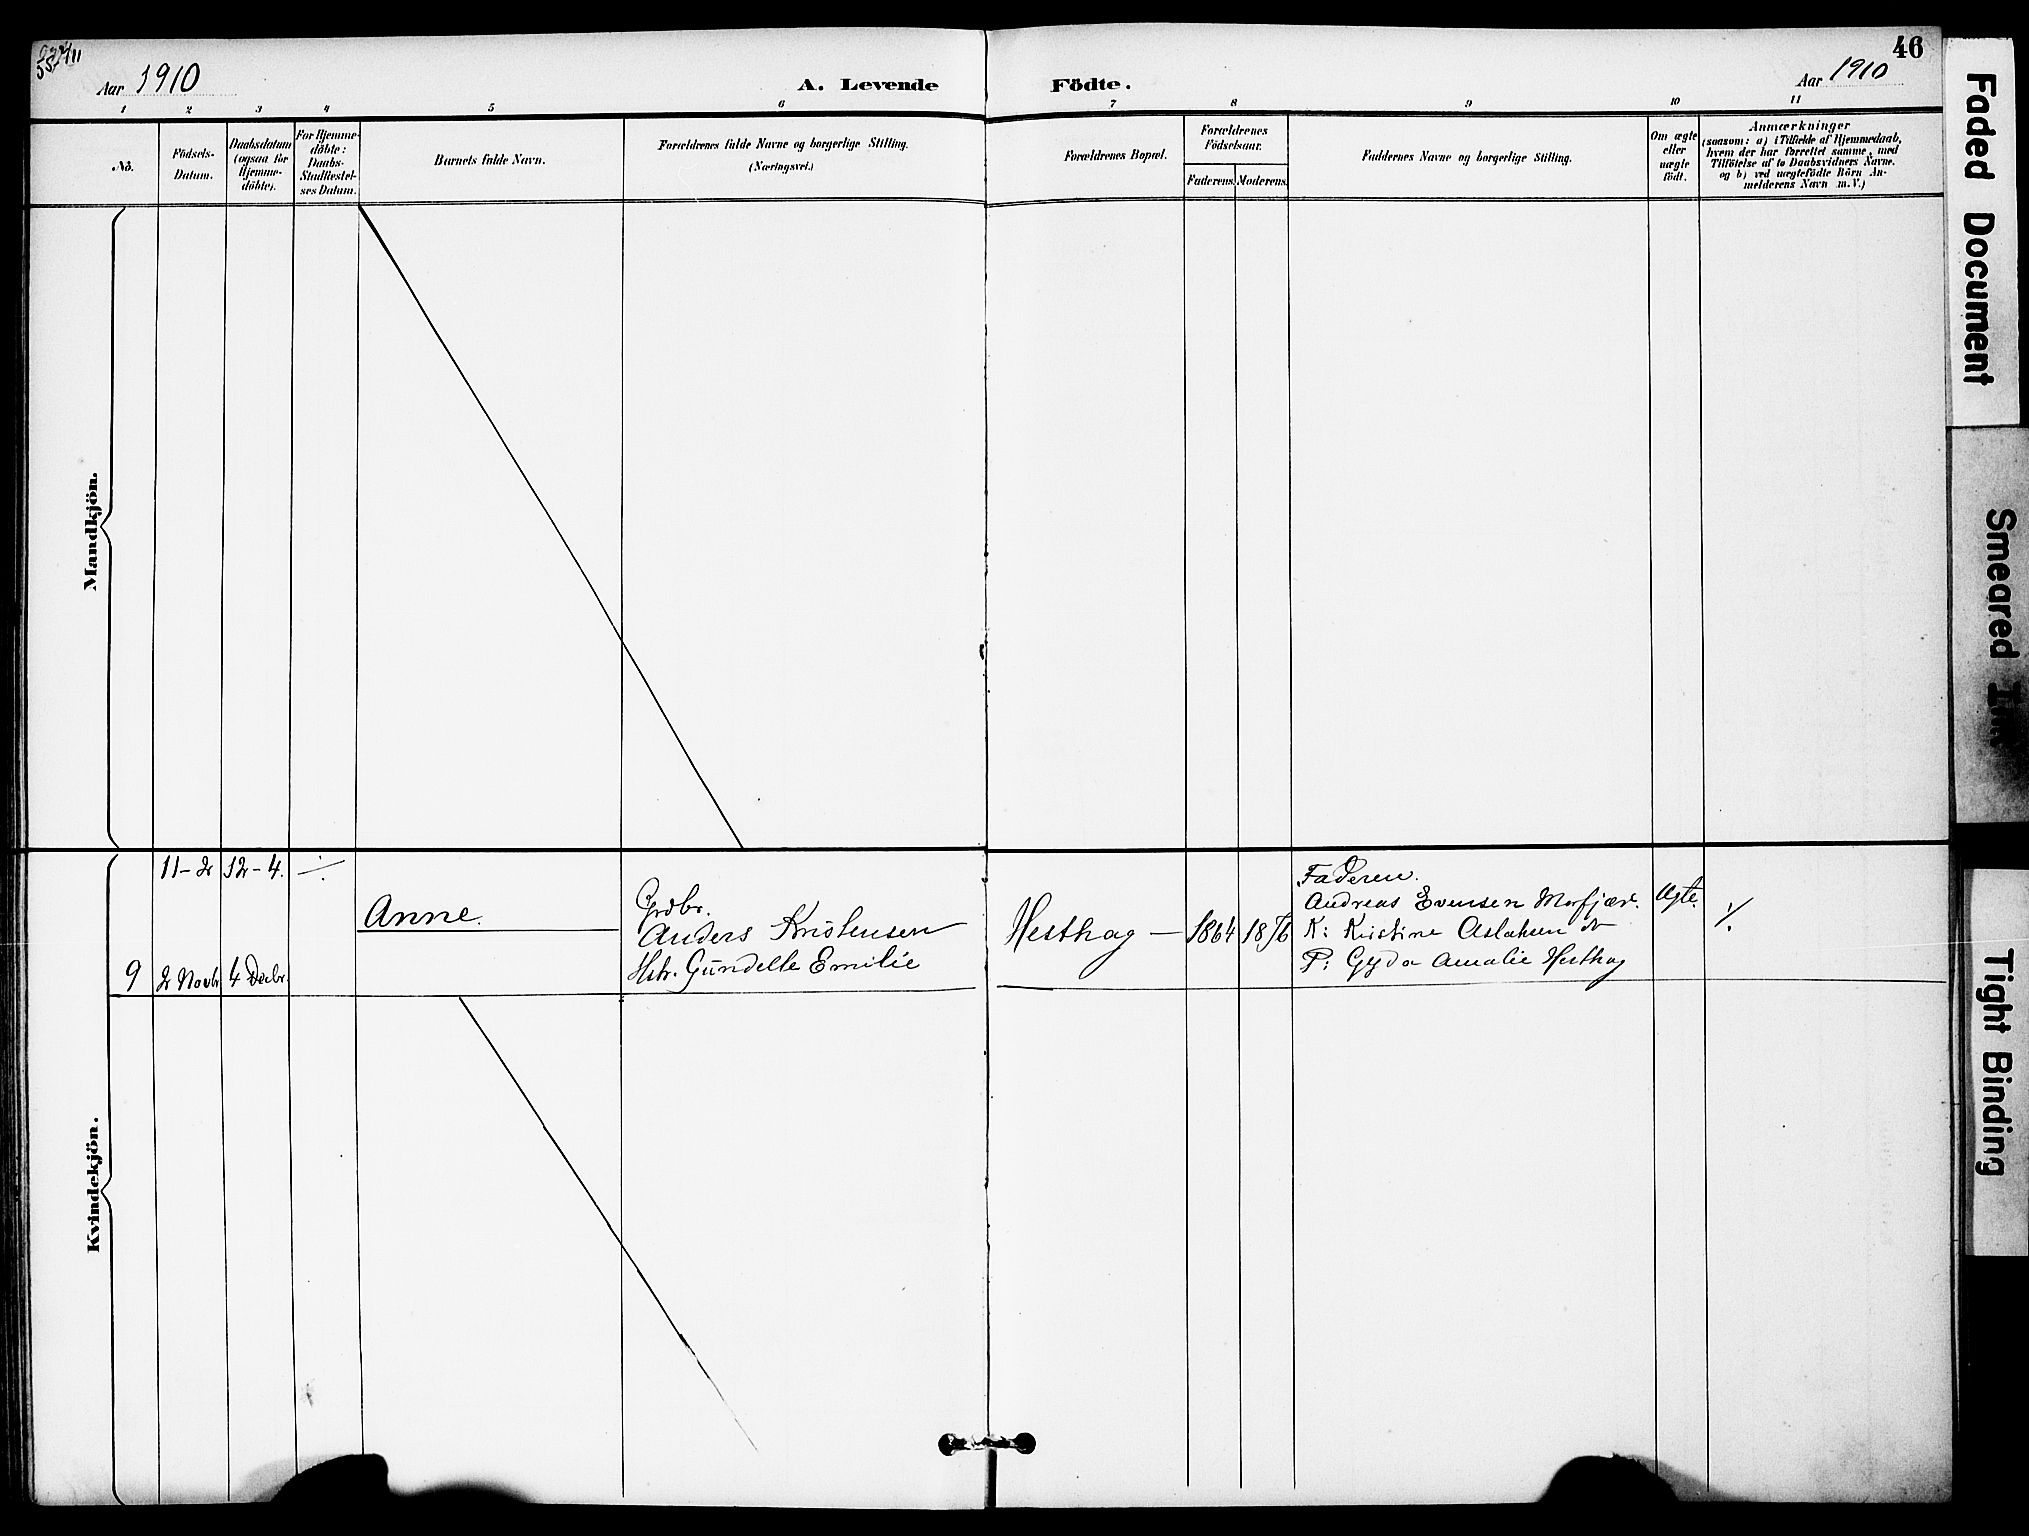 46
Aar 1910
A. Levende Födte.
Aar 1910
1 2 3 4 5 6 7 8 9 10 11
No.
Födsels-
Datum.
Daabsdatum
(ogsaa for
Hjemme-
döbte).
For Hjemme-
döbte:
Daabs-
Stadfæstel-
ses Datum.
Barnets fulde Navn.
Forældrenes fulde Navne og borgerlige Stilling.
(Næringsvei.)
Forældrenes Bopæl.
Forældrenes
Födselsaar.
Faderens. Moderens.
Faddernes Navne og borgerlige Stilling.
Om ægte
eller
uægte
födt.
Anmærkninger
(saasom: a) i Tilfælde af Hjemmedaab,
hvem der har forrettet samme, med
Tilföielse af to Daabsvidners Navne.
og b) ved uægtefödte Börn An-
melderens Navn m.V.)
Mandkjön.
Kvindekjön.
11-2 12-4. ./.
9
2 Novbr 4 Decbr.
Anne.
Grdbr.
Anders Kristensen
Hstr. Gundelle Emilie
Hesthag —
1864 1876
Faderen.
Andreas Evensen Morfjær.
K: Kristine Aslaksen
P: Gyda Amalie Hesthag
Ægte.
./.
Faded Document
Smeared Ink
Tight Binding